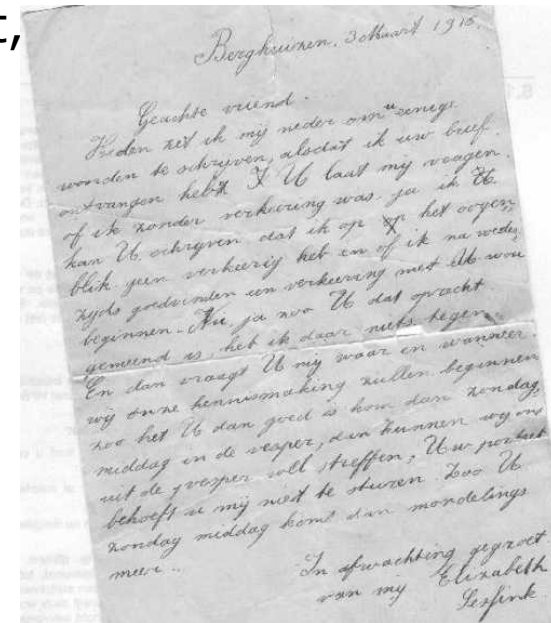 t,
Berghuizen, 3 Maart 1915.
Geachte vriend.
Heden zet ik mij neder om u eenige
woorden te schrijven, alsdat ik uw brief
ontvangen heb. U laat mij vragen
of ik zonder verkeering was. ja ik
kan U schrijven dat ik op het oogen,
blik geen verkeerig heb en of ik na weder,
zijds goedvinden een verkeering met U wou
beginnen. Nu ja zoo U dat opracht
gemeend is, heb ik daar niets tegen
En dan vraagt U mij waar en wanneer
wij onze kennismaking zullen beginnen
zoo het U dan goed is kom dan zondag,
middag in de vesper, dan kunnen wij ons
uit de vesper wel treffen, Uw portret
behoeft u mij niet te sturen. Zoo U
zondag middag komt dan mondelings
meer..
In afwachting gegroet
van mij Elizabeth